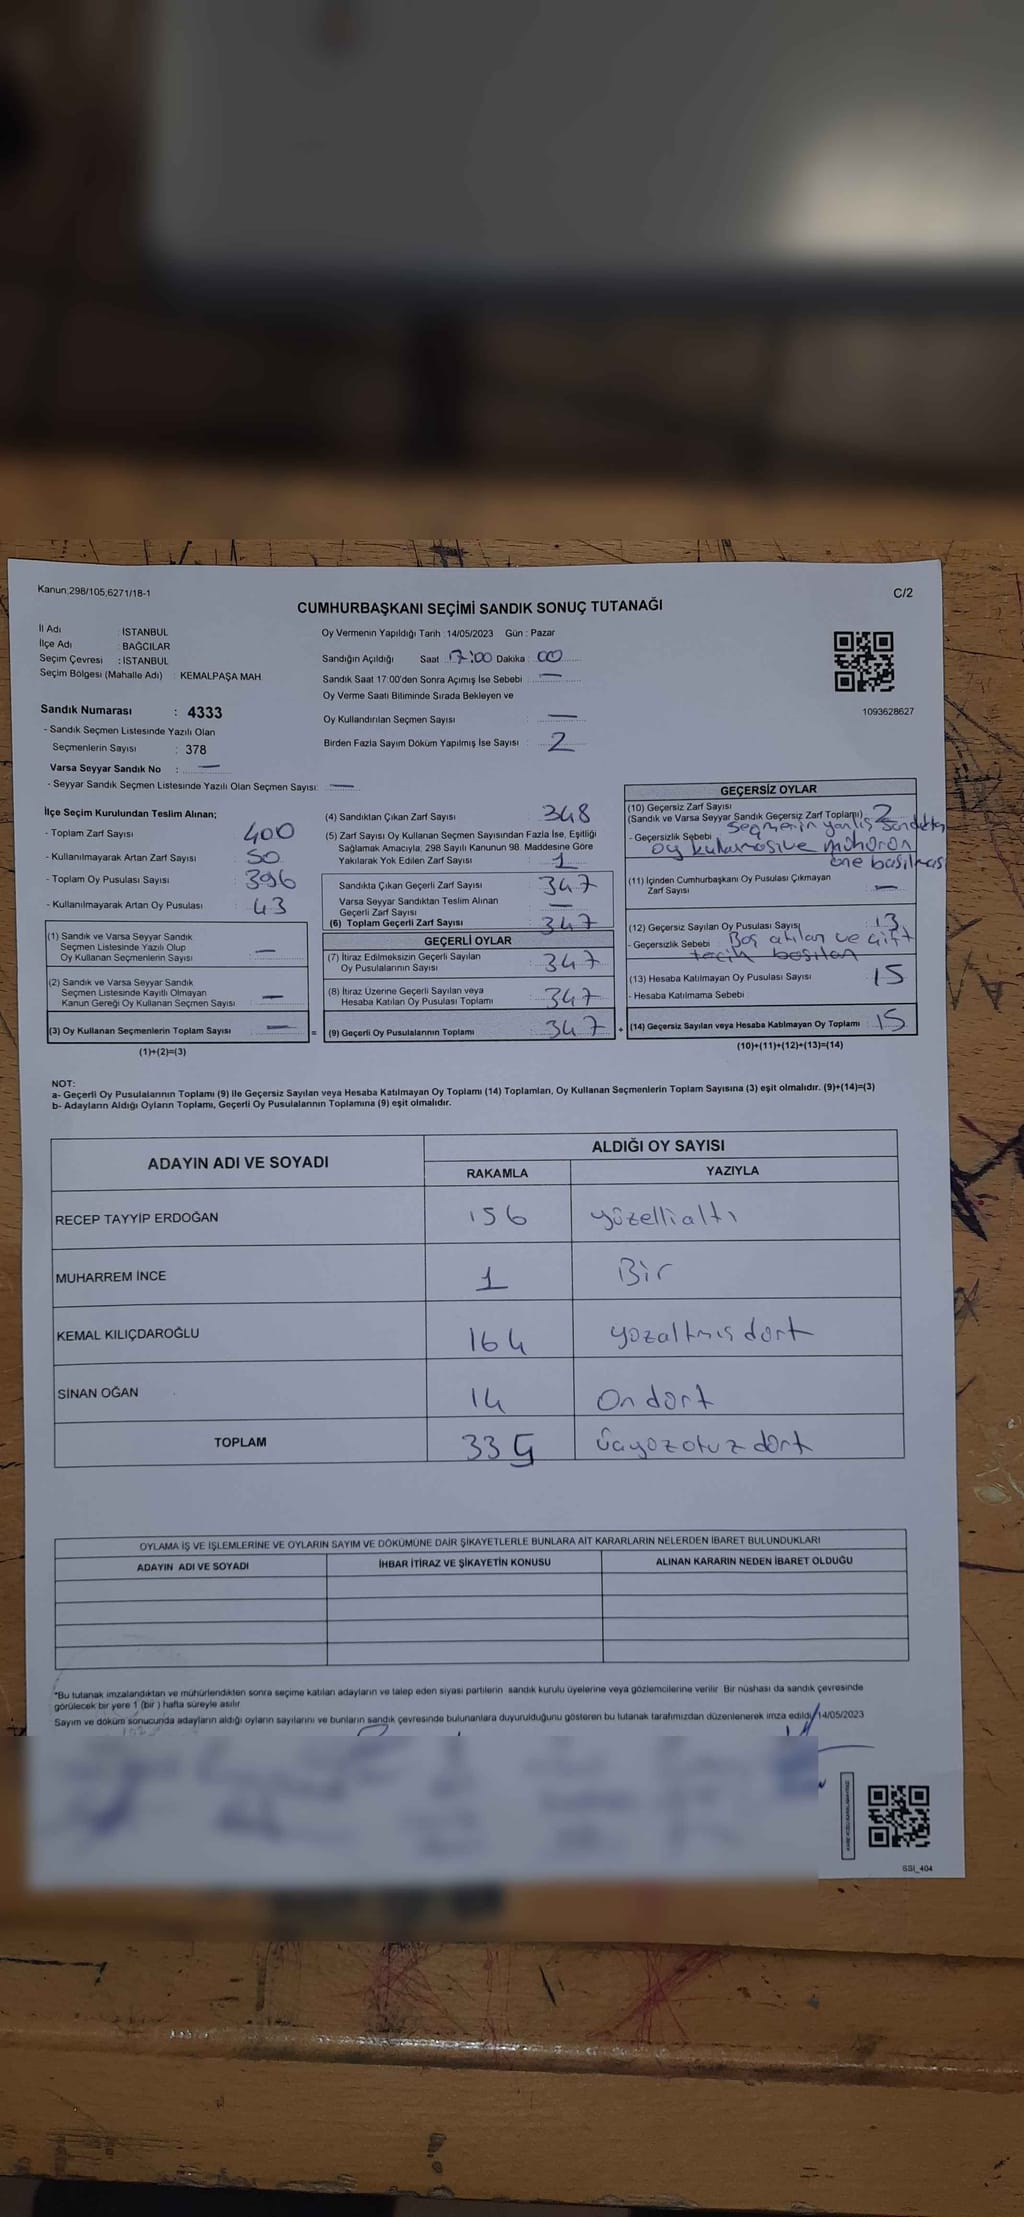 Kanun.298/105,6271/18-1
C/2
CUMHURBAŞKANI SEÇİMİ SANDIK SONUÇ TUTANAĞI
İl Adı : İSTANBUL
İlçe Adı : BAĞCILAR
Seçim Çevresi : İSTANBUL
Seçim Bölgesi (Mahalle Adı) : KEMALPAŞA MAH.
Sandık Numarası : 4333
- Sandık Seçmen Listesinde Yazılı Olan
Seçmenlerin Sayısı : 378
Varsa Seyyar Sandık No : —
- Seyyar Sandık Seçmen Listesinde Yazılı Olan Seçmen Sayısı: —
Oy Vermenin Yapıldığı Tarih : 14/05/2023 Gün : Pazar
Sandığın Açıldığı Saat 17:00 Dakika : 00
Sandık Saat 17:00'den Sonra Açımış İse Sebebi : —
Oy Verme Saati Bitiminde Sırada Bekleyen ve
Oy Kullandırılan Seçmen Sayısı : —
Birden Fazla Sayım Döküm Yapılmış İse Sayısı : 2
1093628627
İlçe Seçim Kurulundan Teslim Alınan;
- Toplam Zarf Sayısı : 400
- Kullanılmayarak Artan Zarf Sayısı : 50
- Toplam Oy Pusulası Sayısı : 396
- Kullanılmayarak Artan Oy Pusulası : 43
(1) Sandık ve Varsa Seyyar Sandık
Seçmen Listesinde Yazılı Olup
Oy Kullanan Seçmenlerin Sayısı —
(2) Sandık ve Varsa Seyyar Sandık
Seçmen Listesinde Kayıtlı Olmayan
Kanun Gereği Oy Kullanan Seçmen Sayısı —
(3) Oy Kullanan Seçmenlerin Toplam Sayısı —
(1)+(2)=(3)
=
(4) Sandıktan Çıkan Zarf Sayısı 348
(5) Zarf Sayısı Oy Kullanan Seçmen Sayısından Fazla İse, Eşitliği
Sağlamak Amacıyla, 298 Sayılı Kanunun 98. Maddesine Göre
Yakılarak Yok Edilen Zarf Sayısı : 1
Sandıkta Çıkan Geçerli Zarf Sayısı 347
Varsa Seyyar Sandıktan Teslim Alınan
Geçerli Zarf Sayısı —
(6) Toplam Geçerli Zarf Sayısı 347
GEÇERLİ OYLAR
(7) İtiraz Edilmeksizin Geçerli Sayılan
Oy Pusulalarının Sayısı 347
(8) İtiraz Üzerine Geçerli Sayılan veya
Hesaba Katılan Oy Pusulası Toplamı 347
(9) Geçerli Oy Pusulalarının Toplamı 347
+
GEÇERSİZ OYLAR
(10) Geçersiz Zarf Sayısı
(Sandık ve Varsa Seyyar Sandık Geçersiz Zarf Toplamı) 2
- Geçersizlik Sebebi : seçmenin yanlış sandıkta
oy kulamasıve mühürün
öne basılması
(11) İçinden Cumhurbaşkanı Oy Pusulası Çıkmayan
Zarf Sayısı —
(12) Geçersiz Sayılan Oy Pusulası Sayısı : 13
- Geçersizlik Sebebi : Boş atılan ve çift
tecih basılan
(13) Hesaba Katılmayan Oy Pusulası Sayısı 15
- Hesaba Katılmama Sebebi :
(14) Geçersiz Sayılan veya Hesaba Katılmayan Oy Toplamı : 15
(10)+(11)+(12)+(13)=(14)
NOT:
a- Geçerli Oy Pusulalarının Toplamı (9) ile Geçersiz Sayılan veya Hesaba Katılmayan Oy Toplamı (14) Toplamları, Oy Kullanan Seçmenlerin Toplam Sayısına (3) eşit olmalıdır. (9)+(14)=(3)
b- Adayların Aldığı Oyların Toplamı, Geçerli Oy Pusulalarının Toplamına (9) eşit olmalıdır.
ADAYIN ADI VE SOYADI
ALDIĞI OY SAYISI
RAKAMLA YAZIYLA
RECEP TAYYİP ERDOĞAN 156 yüzellialtı
MUHARREM İNCE 1 Bir
KEMAL KILIÇDAROĞLU 164 yüzaltmış dört
SİNAN OĞAN 14 On dört
TOPLAM 335 üçyüzotuz dört
OYLAMA İŞ VE İŞLEMLERİNE VE OYLARIN SAYIM VE DÖKÜMÜNE DAİR ŞİKAYETLERLE BUNLARA AİT KARARLARIN NELERDEN İBARET BULUNDUKLARI
ADAYIN ADI VE SOYADI İHBAR İTİRAZ VE ŞİKAYETİN KONUSU ALINAN KARARIN NEDEN İBARET OLDUĞU
*Bu tutanak imzalandıktan ve mühürlendikten sonra seçime katılan adayların ve talep eden siyasi partilerin sandık kurulu üyelerine veya gözlemcilerine verilir. Bir nüshası da sandık çevresinde
görülecek bir yere 1 (bir) hafta süreyle asılır
Sayım ve döküm sonucunda adayların aldığı oyların sayılarını ve bunların sandık çevresinde bulunanlara duyurulduğunu gösteren bu tutanak tarafımızdan düzenlenerek imza edildi. 14/05/2023
SSI_404